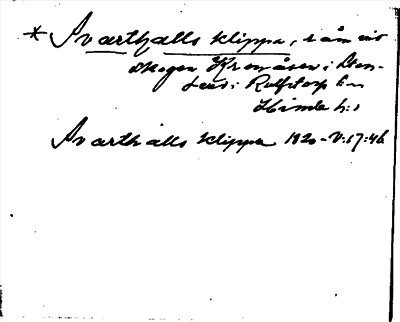 * Svarthalls klippa, i ån vid
skogen Kremåsen i Sten-
i Rolfstorp sn
Himle hd
Svarthalls klippa 1820-V:17:46.